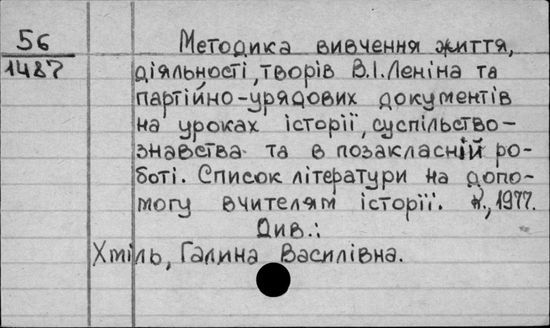 56
1487
Методика вивчення життя,
діяльності, творів В.І.Леніна та
партійно-урядових документів
на уроках історії, суспільство-
знавства та в позакласній ро-
боті. Список літератури на допо-
могу вчителям історії. К., 1977.
Див.:
Хміль, Галина Василівна.